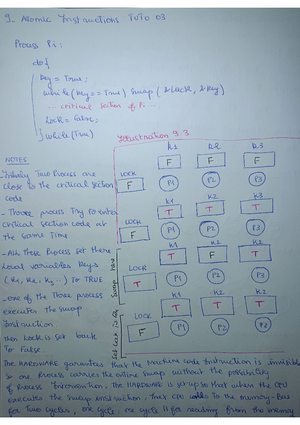 9_ Atomic Instructions TUTO 03
Process Pi:
do{
Key = True;
while (Key == True) Swap (&Lock, &Key)
... critical section of Pi ...
Lock = False;
} while (True)
Illustration 9.3
NOTES
K1 K2 K3
LOCK F F F
F P1 P2 P3
K1 K2 K3
LOCK T T T
F P1 P2 P3
K1 K2 K3
LOCK T F T
T P1 P2 P3
Swap
K1 K2 K3
LOCK T T
F P1 P2
_Initially Two Process are
close to the critical section
code
_Three process Try to enter
critical section code at
the same Time
_All these Process set there
Local variables Keys
(K1, K2, K3 ...) To TRUE
_one of the Three process
executes the swap
Instruction
Then Lock is set back
To False
The HARDWARE garantees that the machine code Instruction is
so one Process carries the entire swap without the possibility
of Process Intervention. The HARDWARE is set up so that when the CPU
executes the swap instruction, that CPU To the memory-Bus
for Two cycles, one cycle for reading from the memory